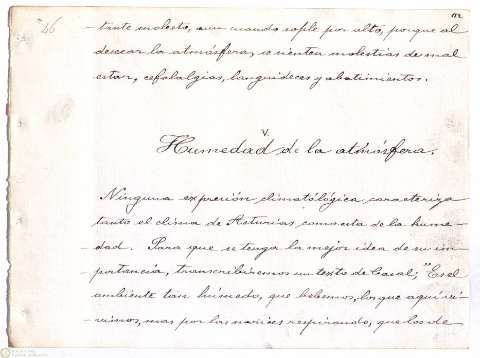 46
112
- tante molesto, aun cuando sople por alto, porque al
desecar la atmósfera, se sienten molestias de mal
estar, cefalalgias, languideces y abatimientos.
V.
Humedad de la atmósfera.
Ninguna expresión climatológica, caracteriza
tanto el clima de Asturias, como esta de la hume-
dad. Para que se tenga la mejor idea de su im-
portancia, transcribiremos un texto de Casal; "Es el
ambiente tan húmedo, que bebemos, los que aquí vi-
- vimos, mas por las narices respirando, que los de